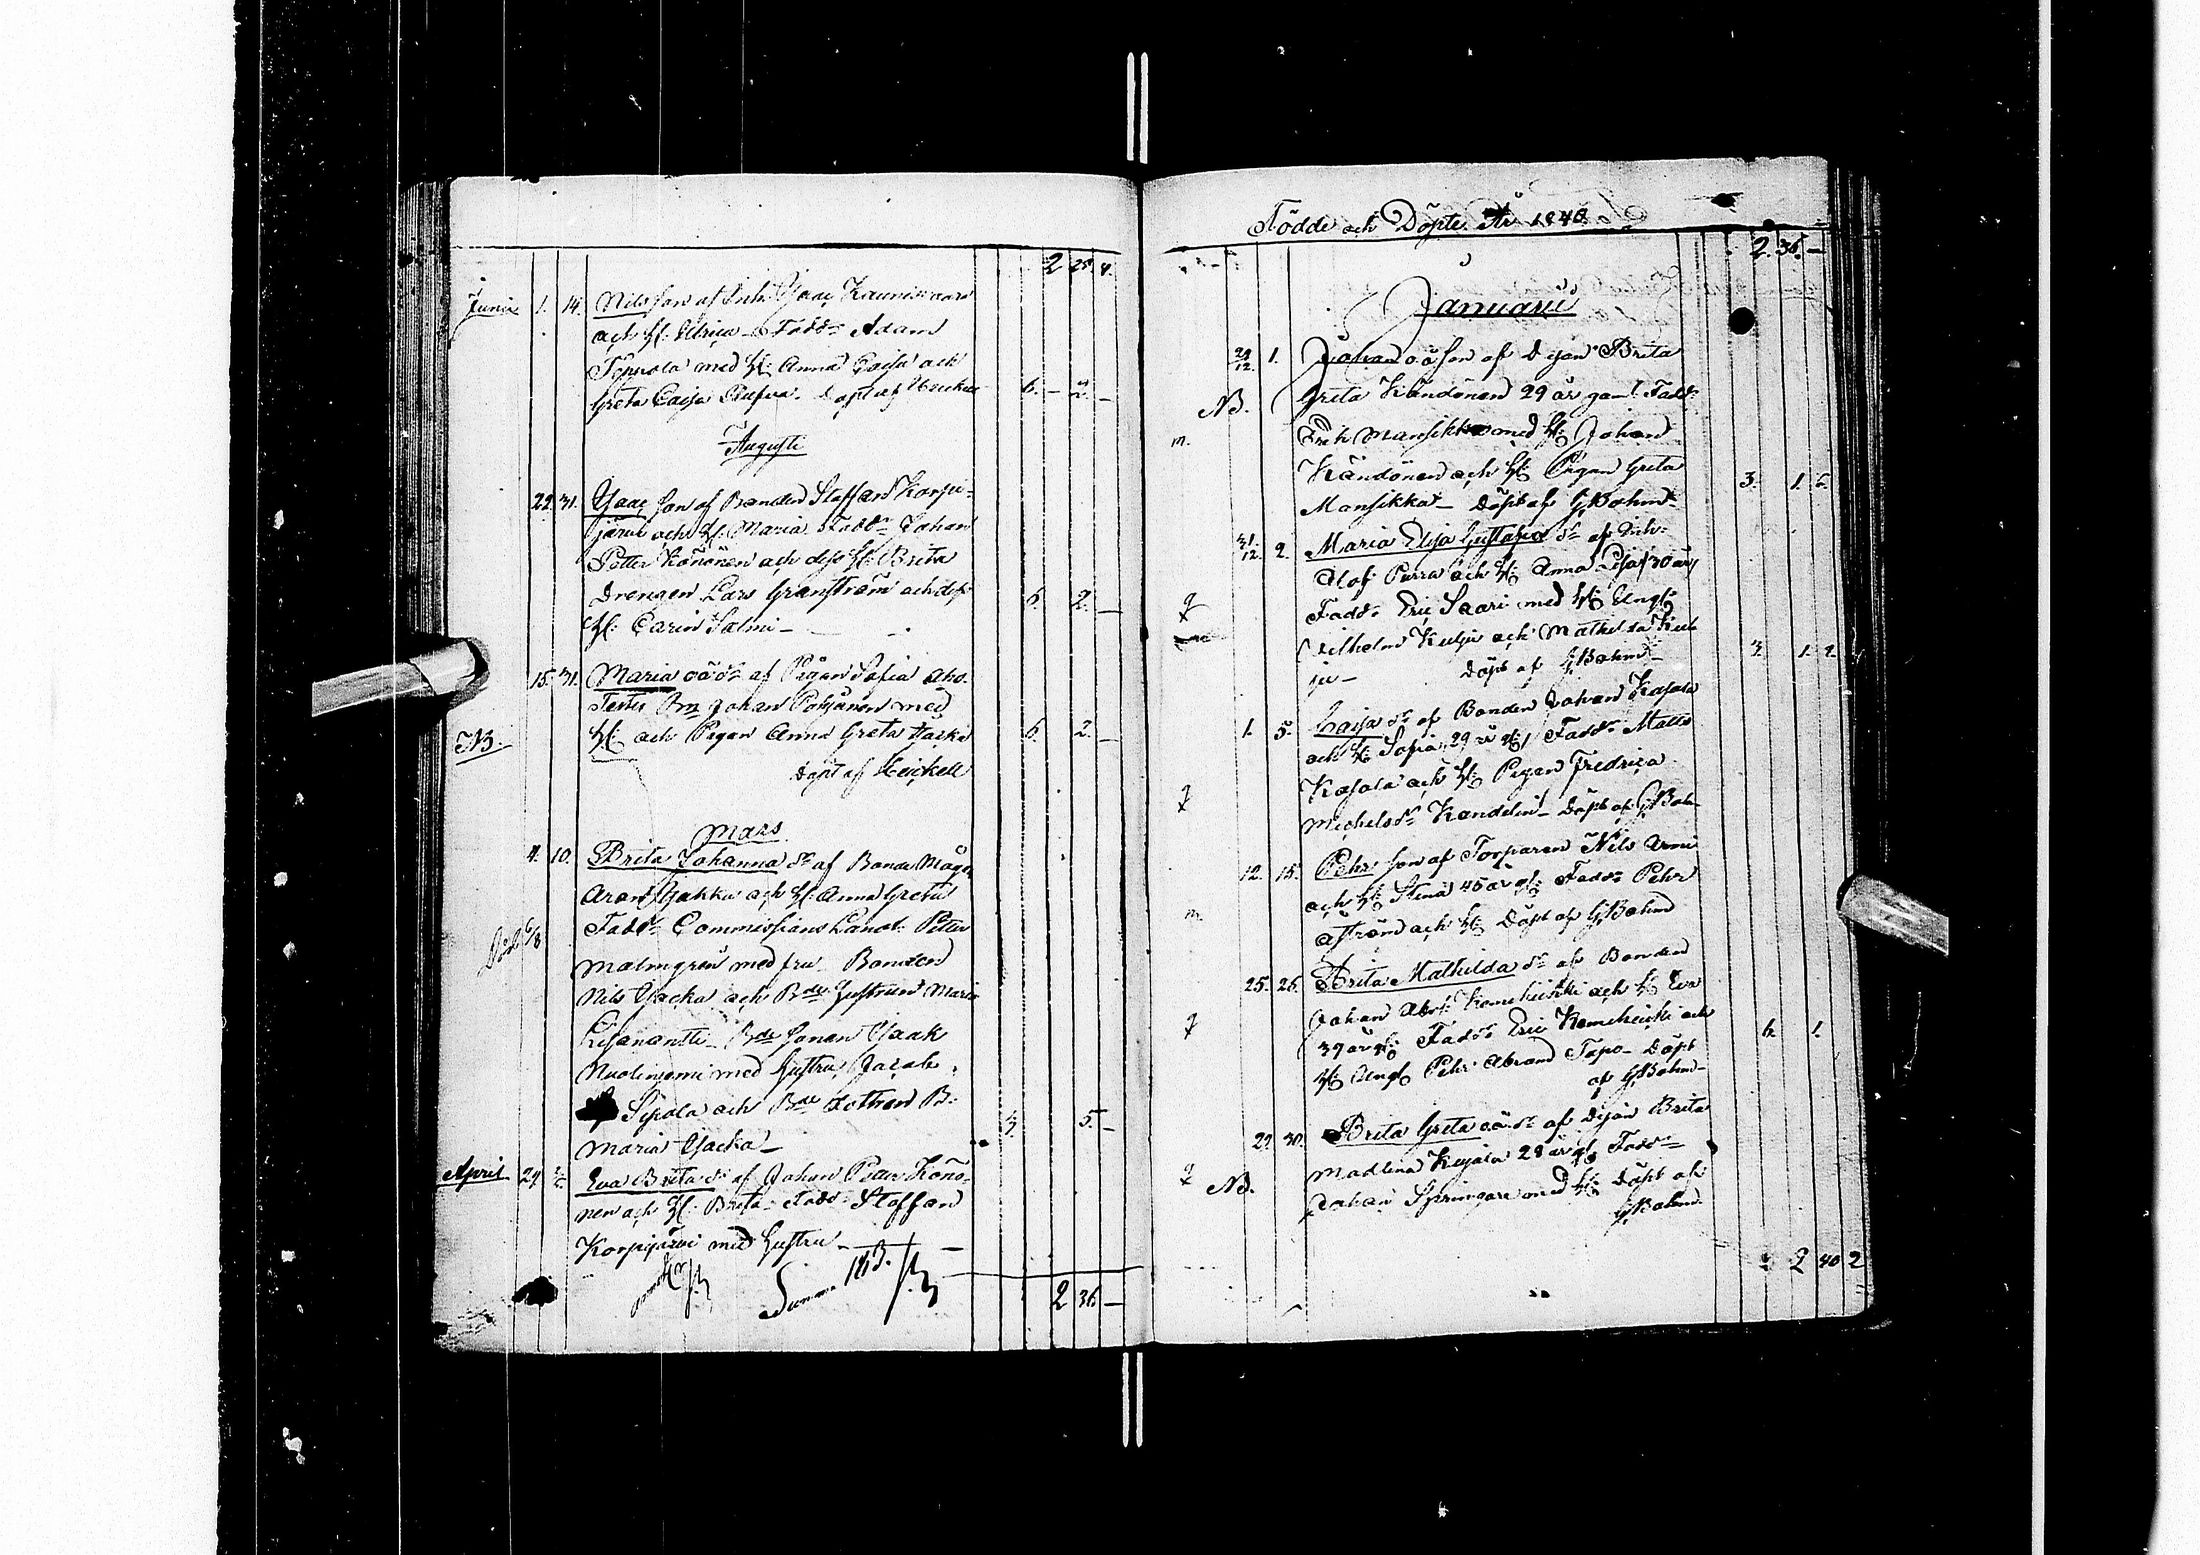 2 25 4.
Junii 1. 14. Nils son af Inh: Isaac Kauniswaara
och H: Ulrica – Fadd: Adam
Teppola med H: Anna Caisa och
Greta Caisa Döpt af 6. – 2. –
Augusti
22. 31. Isaac son af Bonden Staffan Korpi-
järvi och H: Maria Fadd: Johan
Petter Könönen och dess H: Brita
Drengen Lars Granström och dess 6. 2. –
H: Carin Salmi –
15. 31. Maria oä dr af Pigan Sofia Aho.
Johan Pohjanen med
NB. H: och Pigan Anna Greta 6. 2. –
Döpt af Heickell
Mars
4. 10. Brita Johanna dr af Bonde Mågen
Aron Isakka och H: Anna Greta
Död 6/8 Fadd: Commissions Landt: Petter
Malmgren med fru Bonden
Nils Isacka och Bde Hustrun Maria
Bde Sonen Isaak
Nuoliniemi med Hustru, Jacob
Sipola och Bde dottren B:
Maria Isacka – 3. 5. –
April 29 Eva Brita dr af Johan Petter Könö-
nen och H: Brita – Fadd: Staffan
Korpijärvi med Hustru –
Summa 1813.
2 36 –
Födde och Döpte År 1848
2. 36. –
Januarii
29/12. 1. Johan oä son af Pigan Brita
NB. Greta Kändönen 29 år gaml. Fadd:
m. Erik Mansikka med H: Johan
Kändönen och H: Pigan Greta
Mansikka – Döpt af G Bohm – 3. 1. 2.
31/12. 2. Maria Elisa Gustafva dr af Inh:
Olof Purra och H: Anna Lisa (30 år)
q Fadd: Eric Saari med H: Ungk:
Wilhelm Kulju och Mathilda Kul-
ju – Döpt af G Bohm – 3. 1. 2.
1. 5. Caisa dr af Bonden Johan Kasala
och H: Sofia, 29 år g:, Fadd: Matts
q Kasala och H: Pigan Fredrica
Michelsdr Kandelin – Döpt af G Boh-
12. 15. Pehr son af Torparen Nils Armi
och H: Stina 45 år g: Fadd: Pehr
m. Åström och H: Döpt af G Bohm
25. 26. Brita Mathilda dr af Bonden
Johan Abr: Komeheiski och H: Eva
q 39 år g: Fadd: Eric Komeheiski och 6. 1.
H: Ungk: Pehr Abram Tapo – Döpt
af G Bohm –
29. 30. Brita Greta oä dr af Pigan Brita
q NB. Madlena 28 år g: Fadd:
Johan Springare med H: Döpt af
G Bohm
2 40 2